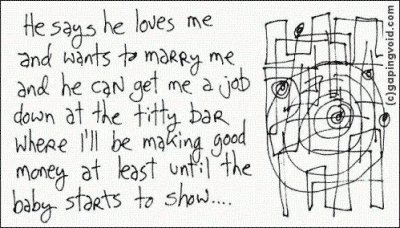 He says he loves me
and wants to marry me
and he can get me a job
down at the titty bar
where I'll be making good
money at least until the
baby starts to show....
(c)gapingvoid.com